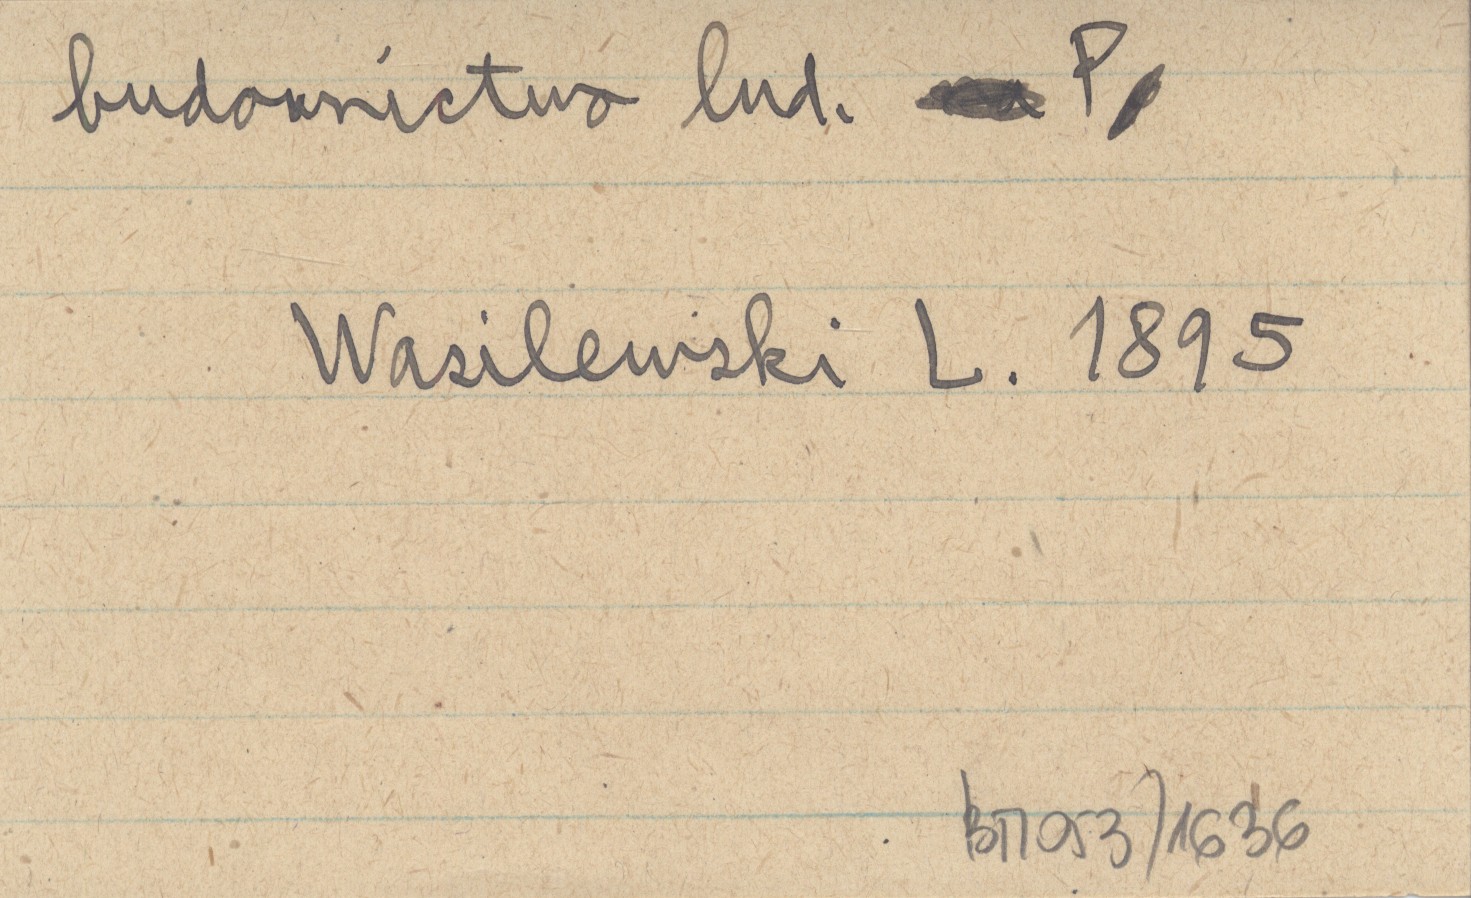 budownictwo lud. P
Wasilewski L. 1895
1636